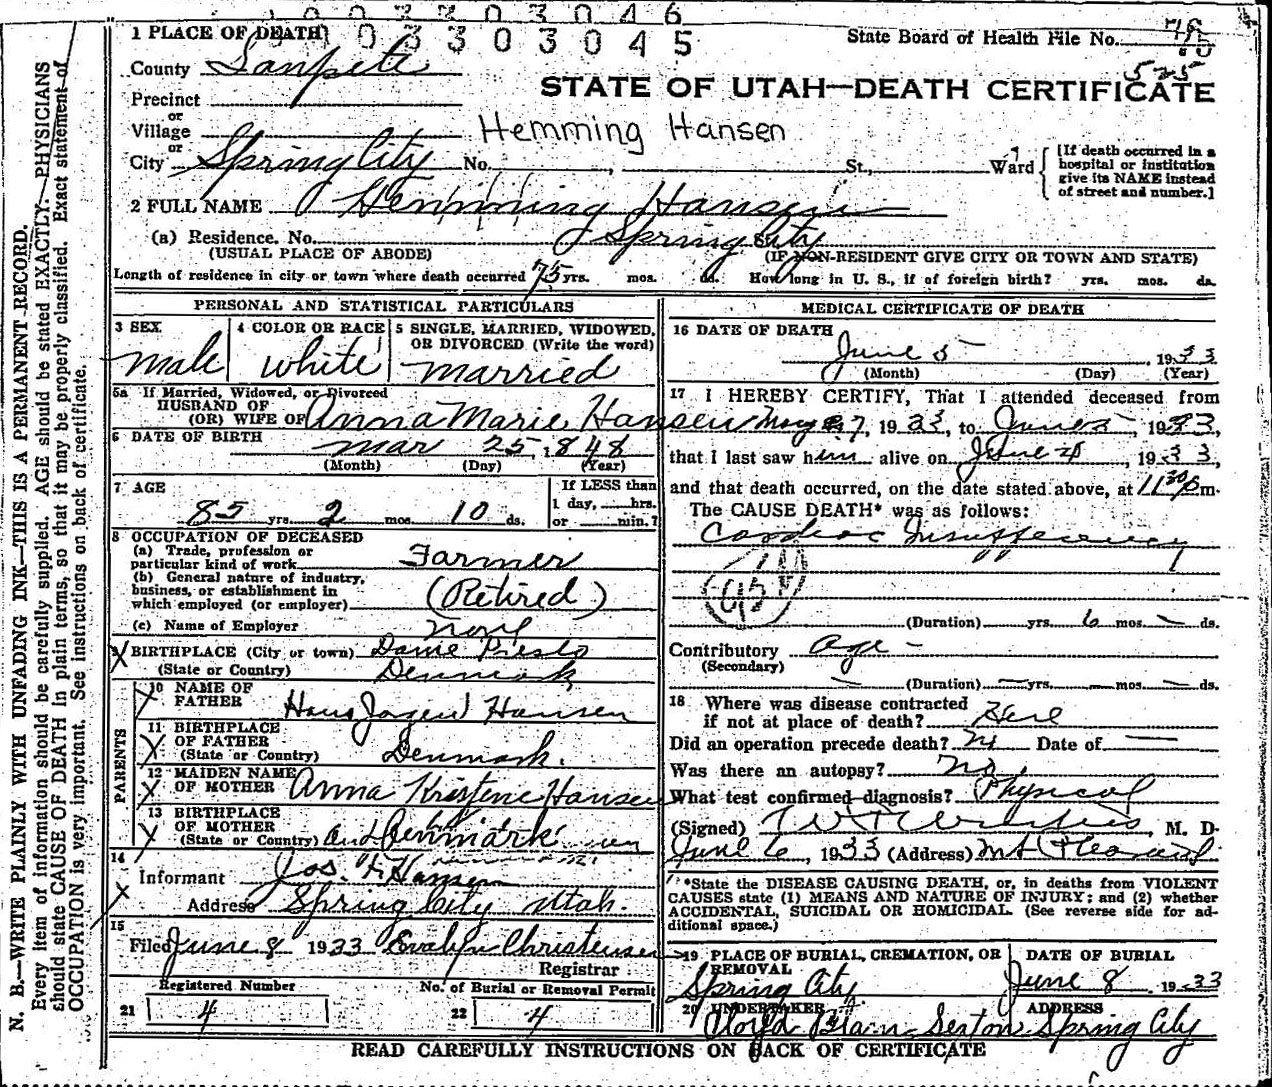 0 0 3 3 0 3 0 4 6
0 0 3 3 0 3 0 4 5
1 PLACE OF DEATH
State Board of Health File No.
525
County Sanpete
STATE OF UTAH—DEATH CERTIFICATE
Precinct
or
Village
Hemming Hansen
or
City Spring City No. , St., Ward
[If death occurred in a hospital or institution give its NAME instead of street and number.]
2 FULL NAME Hemming Hansen
(a) Residence. No. Spring City St.
(USUAL PLACE OF ABODE) (IF NON-RESIDENT GIVE CITY OR TOWN AND STATE)
Length of residence in city or town where death occurred 75 yrs. mos. ds. How long in U. S., if of foreign birth? yrs. mos. ds.
PERSONAL AND STATISTICAL PARTICULARS
3 SEX
male
4 COLOR OR RACE
white
5 SINGLE, MARRIED, WIDOWED, OR DIVORCED (Write the word)
married
5a If Married, Widowed, or Divorced
HUSBAND OF
(OR) WIFE OF Anna Marie Hansen
6 DATE OF BIRTH
mar 25, 1848
(Month) (Day) (Year)
7 AGE
85 yrs. 2 mos. 10 ds.
If LESS than
1 day, hrs.
or min.?
8 OCCUPATION OF DECEASED
(a) Trade, profession or
particular kind of work Farmer
(b) General nature of industry,
business, or establishment in
which employed (or employer) (Retired)
(c) Name of Employer none
9 BIRTHPLACE (City or town)
(State or Country) Denmark
PARENTS
10 NAME OF
FATHER Hans Jorgen Hansen
11 BIRTHPLACE
OF FATHER
(State or Country) Denmark.
12 MAIDEN NAME
OF MOTHER Anna Kristene Hansen
13 BIRTHPLACE
OF MOTHER
(State or Country) Denmark
14
Informant Jos. F. Hansen
Address Spring City Utah.
15
Filed June 8 1933 Evelyn Christensen
Registrar
Registered Number
21 4
No. of Burial or Removal Permit
22 4
MEDICAL CERTIFICATE OF DEATH
16 DATE OF DEATH
June 5 1933
(Month) (Day) (Year)
17 I HEREBY CERTIFY, That I attended deceased from
May 27, 1933, to June 5, 1933,
that I last saw him alive on June 5, 1933,
and that death occurred, on the date stated above, at 11 30 p m.
The CAUSE DEATH* was as follows:
Cardiac Insufficiency
95
(Duration) yrs. 6 mos. — ds.
Contributory Age —
(Secondary)
(Duration) — yrs. — mos. — ds.
18 Where was disease contracted
if not at place of death? Here
Did an operation precede death? no Date of —
Was there an autopsy? no
What test confirmed diagnosis? Physical
(Signed) , M. D.
June 6, 1933 (Address) Mt Pleasant
*State the DISEASE CAUSING DEATH, or, in deaths from VIOLENT
CAUSES state (1) MEANS AND NATURE OF INJURY; and (2) whether
ACCIDENTAL, SUICIDAL OR HOMICIDAL. (See reverse side for ad-
ditional space.)
19 PLACE OF BURIAL, CREMATION, OR
REMOVAL
Spring City
DATE OF BURIAL
June 8 1933
20 UNDERTAKER ADDRESS
Sexton Spring City
READ CAREFULLY INSTRUCTIONS ON BACK OF CERTIFICATE
N. B.—WRITE PLAINLY WITH UNFADING INK—THIS IS A PERMANENT RECORD.
Every item of information should be carefully supplied. AGE should be stated EXACTLY. PHYSICIANS
should state CAUSE OF DEATH in plain terms, so that it may be properly classified. Exact statement of
OCCUPATION is very important. See instructions on back of certificate.